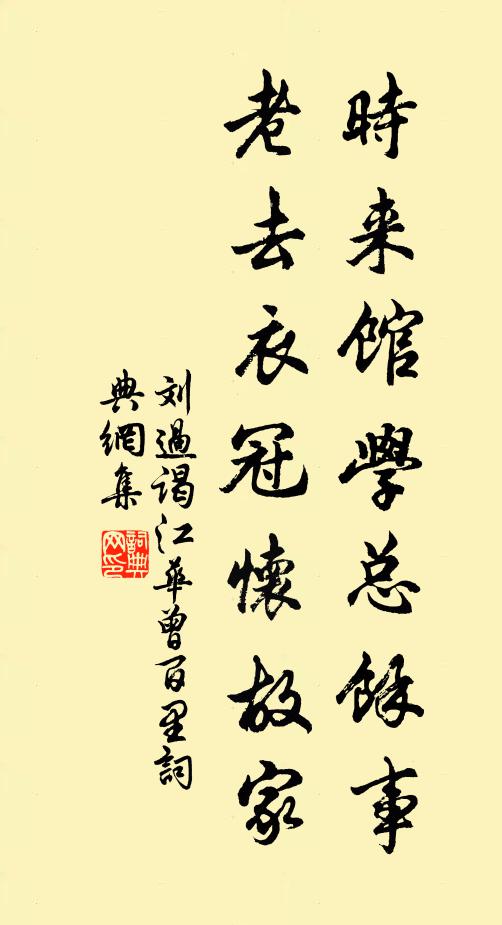 時来館學总餘事
老去衣冠懷故家
刘過謁江華曾百里詞
典網集
詞典
网印